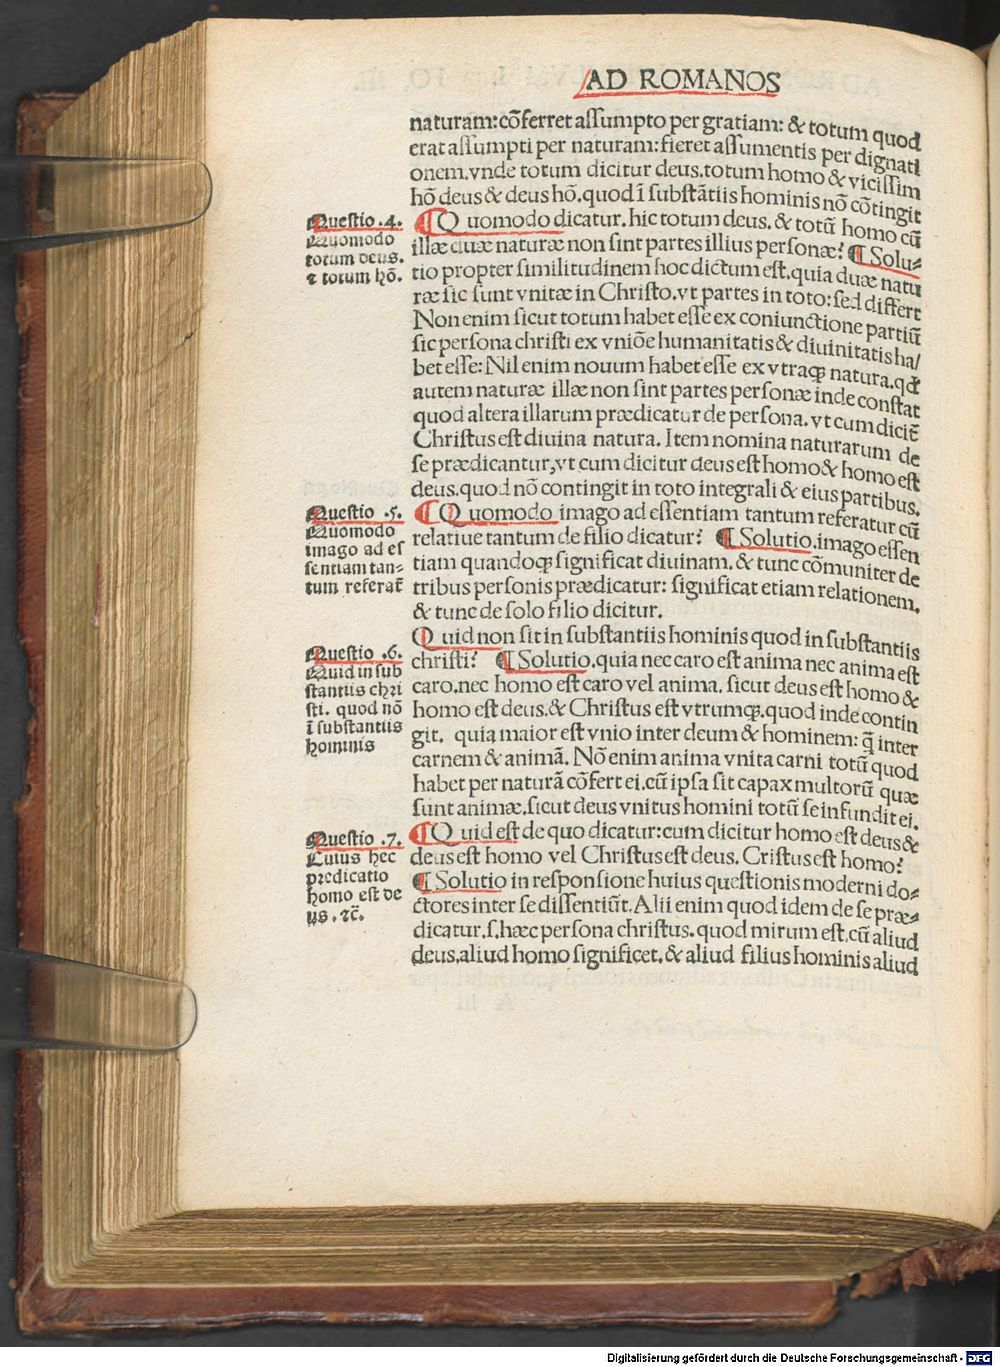 AD ROMANOS
naturam: cõferret assumpto per gratiam: & totum quod
erat assumpti per naturam: fieret assumentis per dignati
onem. vnde totum dicitur deus. totum homo & vicissim
hõ deus & deus hõ. quod ĩ substãtiis hominis nõ cõtingit
Questio .4.
Quomodo
totum deus.
⁊ totum hõ.
¶ Quomodo dicatur. hic totum deus. & totũ homo cũ
illæ duæ naturæ non sint partes illius personæ? ¶ Solu-
tio propter similitudinem hoc dictum est. quia duæ natu
ræ sic sunt vnitæ in Christo. vt partes in toto: sed differt
Non enim sicut totum habet esse ex coniunctione partiũ
sic persona christi ex vniõe humanitatis & diuinitatis ha/
bet esse: Nil enim nouum habet esse ex vtraqꝫ natura. qđ
autem naturæ illæ non sint partes personæ inde constat
quod altera illarum prædicatur de persona. vt cum dicit̃
Christus est diuina natura. Item nomina naturarum de
se prædicantur, vt cum dicitur deus est homo & homo est
deus. quod nõ contingit in toto integrali & eius partibus.
Questio .5.
Quomodo
imago ad es
sentiam tan-
tum referat̃
¶ Quomodo imago ad essentiam tantum referatur cũ
relatiue tantum de filio dicatur? ¶ Solutio. imago essen
tiam quandoqꝫ significat diuinam. & tunc cõmuniter de
tribus personis prædicatur: significat etiam relationem.
& tunc de solo filio dicitur.
Questio .6.
Quid in sub
stantiis chri
sti. quod nõ
ĩ substantiis
hominis
Quid non sit in substantiis hominis quod in substantiis
christi? ¶ Solutio. quia nec caro est anima nec anima est
caro. nec homo est caro vel anima. sicut deus est homo &
homo est deus. & Christus est vtrumqꝫ. quod inde contin
git. quia maior est vnio inter deum & hominem: q̃ inter
carnem & animã. Nõ enim anima vnita carni totũ quod
habet per naturã cõfert ei. cũ ipsa sit capax multorũ quæ
sunt animæ. sicut deus vnitus homini totũ se infundit ei.
Questio .7.
Cuius hec
predicatio
homo est de
us. ⁊c̃.
¶ Quid est de quo dicatur: cum dicitur homo est deus &
deus est homo vel Christus est deus. Cristus est homo?
¶ Solutio in responsione huius questionis moderni do-
ctores inter se dissentiũt. Alii enim quod idem de se præ-
dicatur. s. hæc persona christus. quod mirum est. cũ aliud
deus, aliud homo significet. & aliud filius hominis aliud
Digitalisierung gefördert durch die Deutsche Forschungsgemeinschaft - DFG